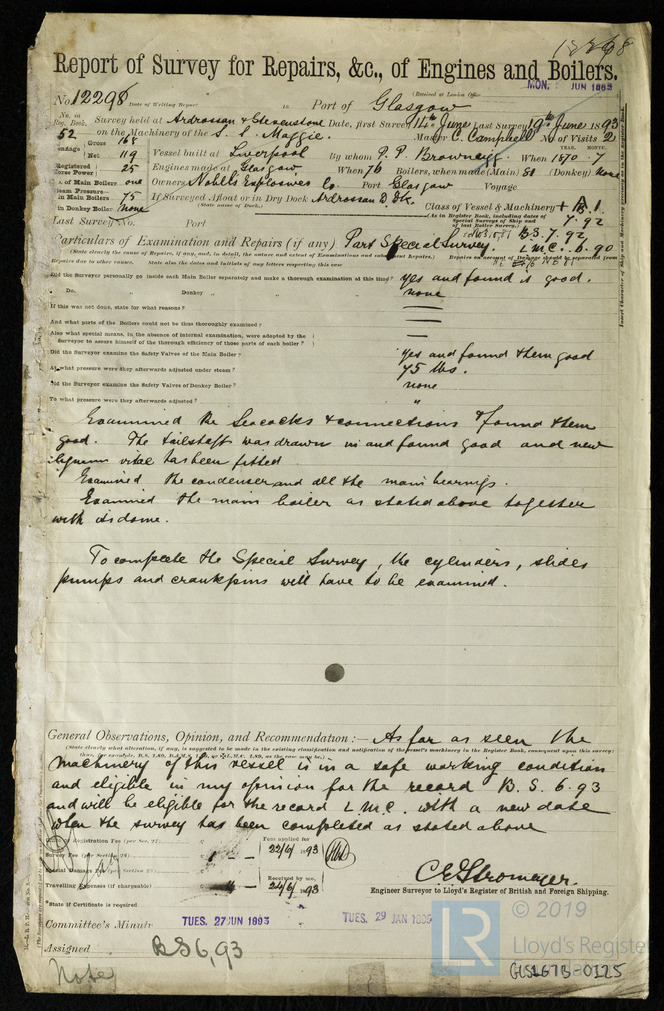 Report of Survey for Repairs, &c., of Engines and Boilers.
MON. JUN 1893
No. 12298 Date of Writing Report in Port of Glasgow (Received at London Office
No. in Reg. Book. 52 Survey held at Ardrossan & Stevenston Date, first Survey 14th June Last Survey 19th June 1893
on the Machinery of the S. S. Maggie. Master C. Campbell No. of Visits 2
Gross 168
Net 119 Vessel built at Liverpool By whom When 1870 - 7
Registered Horse Power 25 Engines made at Glasgow When 76 Boilers, when made (Main) 81 (Donkey) None
No. of Main Boilers one Owners Nobells Explosives Co Port Glasgow Voyage
Steam Pressure in Main Boilers 75 If Surveyed Afloat or in Dry Dock Ardrossan D. Dk.
(State name of Dock.)
in Donkey Boiler None Class of Vessel & Machinery
(As in Register Book, including dates of Special Surveys of Ship and of last Boiler Survey.)
7.92
Last Survey No. Port
B.S. 7.92
L.M.C. 6.90
Particulars of Examination and Repairs (if any) Part Special Survey.
Did the Surveyor personally go inside each Main Boiler separately and make a thorough examination at this time? yes and found it good.
Do. Donkey Do. Do. none
If this was not done, state for what reasons?
And what parts of the Boilers could not be thus thoroughly examined?
Also what special means, in the absence of internal examination, were adopted by the
Surveyor to assure himself of the thorough efficiency of those parts of each boiler?
Did the Surveyor examine the Safety Valves of the Main Boiler? yes and found them good
At what pressure were they afterwards adjusted under steam? 75 lbs.
Did the Surveyor examine the Safety Valves of Donkey Boiler? none
To what pressure were they afterwards adjusted? "
Examined the Seacocks & connections & found them
good. The tailshaft was drawn in and found good and new
lignum vitae has been fitted
Examined the condenser and all the main bearings.
Examined the main boiler as stated above together
with its dome.
To complete the Special Survey, the cylinders, slides
pumps and crankpins will have to be examined.
General Observations, Opinion, and Recommendation:— As far as seen the
(State clearly what alteration, if any, is suggested to be made in the existing classification and notification of the vessel's machinery in the Register Book, consequent upon this survey:
machinery of this vessel is in a safe working condition
and eligible in my opinion for the record B.S. 6.93
and will be eligible for the record L.M.C. with a new date
when the survey has been completed as stated above
Registration Fee (per Sec. 27) Fees applied for
Survey Fee (per Section 28) 22/6/1893
Special Damage Fee (per Section 28) Received by me,
Travelling Expenses (if chargeable) 24/6/1893
C. E. Stromeyer.
Engineer Surveyor to Lloyd's Register of British and Foreign Shipping.
*State if Certificate is required
Committee's Minute TUES. 27 JUN 1893 TUES. 29 JAN 1895
Assigned BS 6,93
Note
LR © 2019
Lloyd's Register
GLS167B-0125